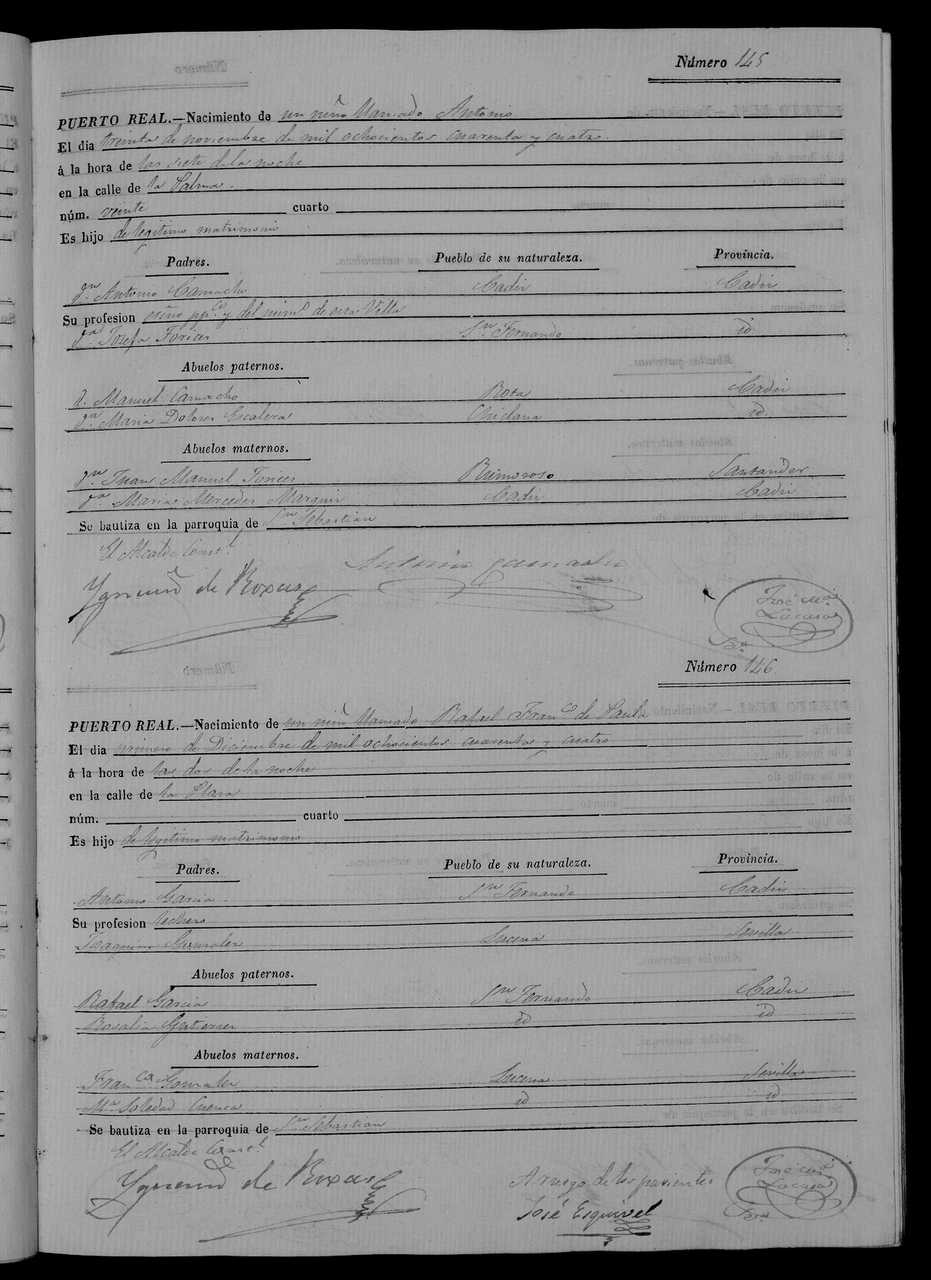 Número 145
PUERTO REAL.—Nacimiento de un niño llamado Antonio
El dia treinta de noviembre de mil ochocientos cuarenta y cuatro
á la hora de las siete de la noche
en la calle de la Palma
núm. veinte cuarto
Es hijo de legitimo matrimonio
Padres. Pueblo de su naturaleza. Provincia.
Dn. Antonio Camacho Cadiz Cadiz
Su profesion y del de esta Villa
Da. Josefa Torices Sn. Fernando id
Abuelos paternos.
D. Manuel Camacho Rota Cadiz
Da. Maria Dolores Escalera Chiclana id
Abuelos maternos.
Dn. Juan Manuel Torices Santander
Da. Maria Mercedes Marquez Cadiz Cadiz
Se bautiza en la parroquia de Sn. Sebastian
El Alcalde Const.l
Ygnacio de Roxas
Antonio Camacho
José Ma.
Lacasa
Srio.
Número 146
PUERTO REAL.—Nacimiento de un niño llamado Rafael Franco. de Paula
El dia primero de Diciembre de mil ochocientos cuarenta y cuatro
á la hora de las dos de la noche
en la calle de la Plaza
núm. cuarto
Es hijo de legitimo matrimonio
Padres. Pueblo de su naturaleza. Provincia.
Antonio Garcia Sn. Fernando Cadiz
Su profesion lechero
Joaquina Gonzalez Lucena Sevilla
Abuelos paternos.
Rafael Garcia Sn. Fernando Cadiz
Rosalia Gutierrez id id
Abuelos maternos.
Franco. Gonzalez Lucena Sevilla
Ma. Soledad Cuenca id id
Se bautiza en la parroquia de Sn. Sebastian
El Alcalde Const.l
Ygnacio de Roxas
A ruego de los parientes
José Esquivel
José Ma.
Lacasa
Srio.